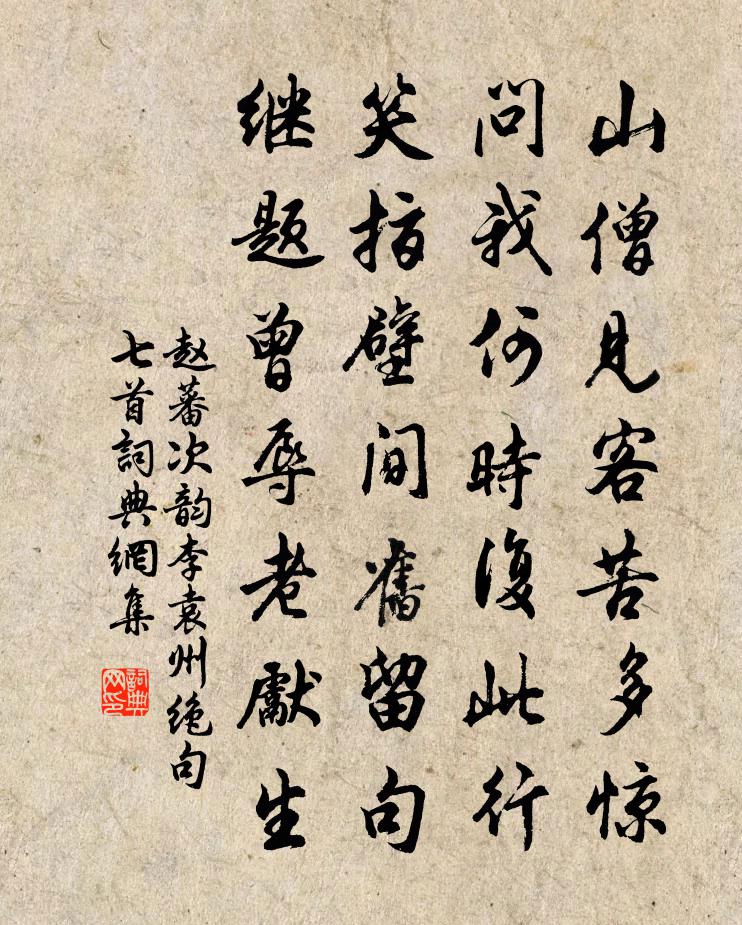 山僧見客苦多惊
问我何時復此行
笑指壁间舊留句
继题曾辱老獻生
赵蕃次韵李袁州绝句
七首詞典網集
詞典
网印